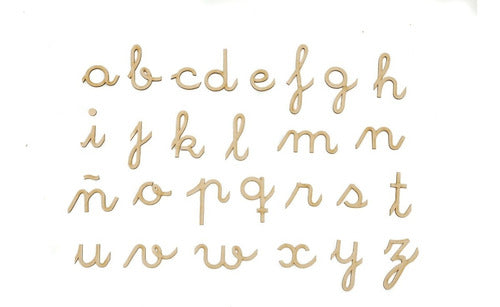 a b c d e f g h
i j k l m n
ñ o p q r s t
u v w x y z